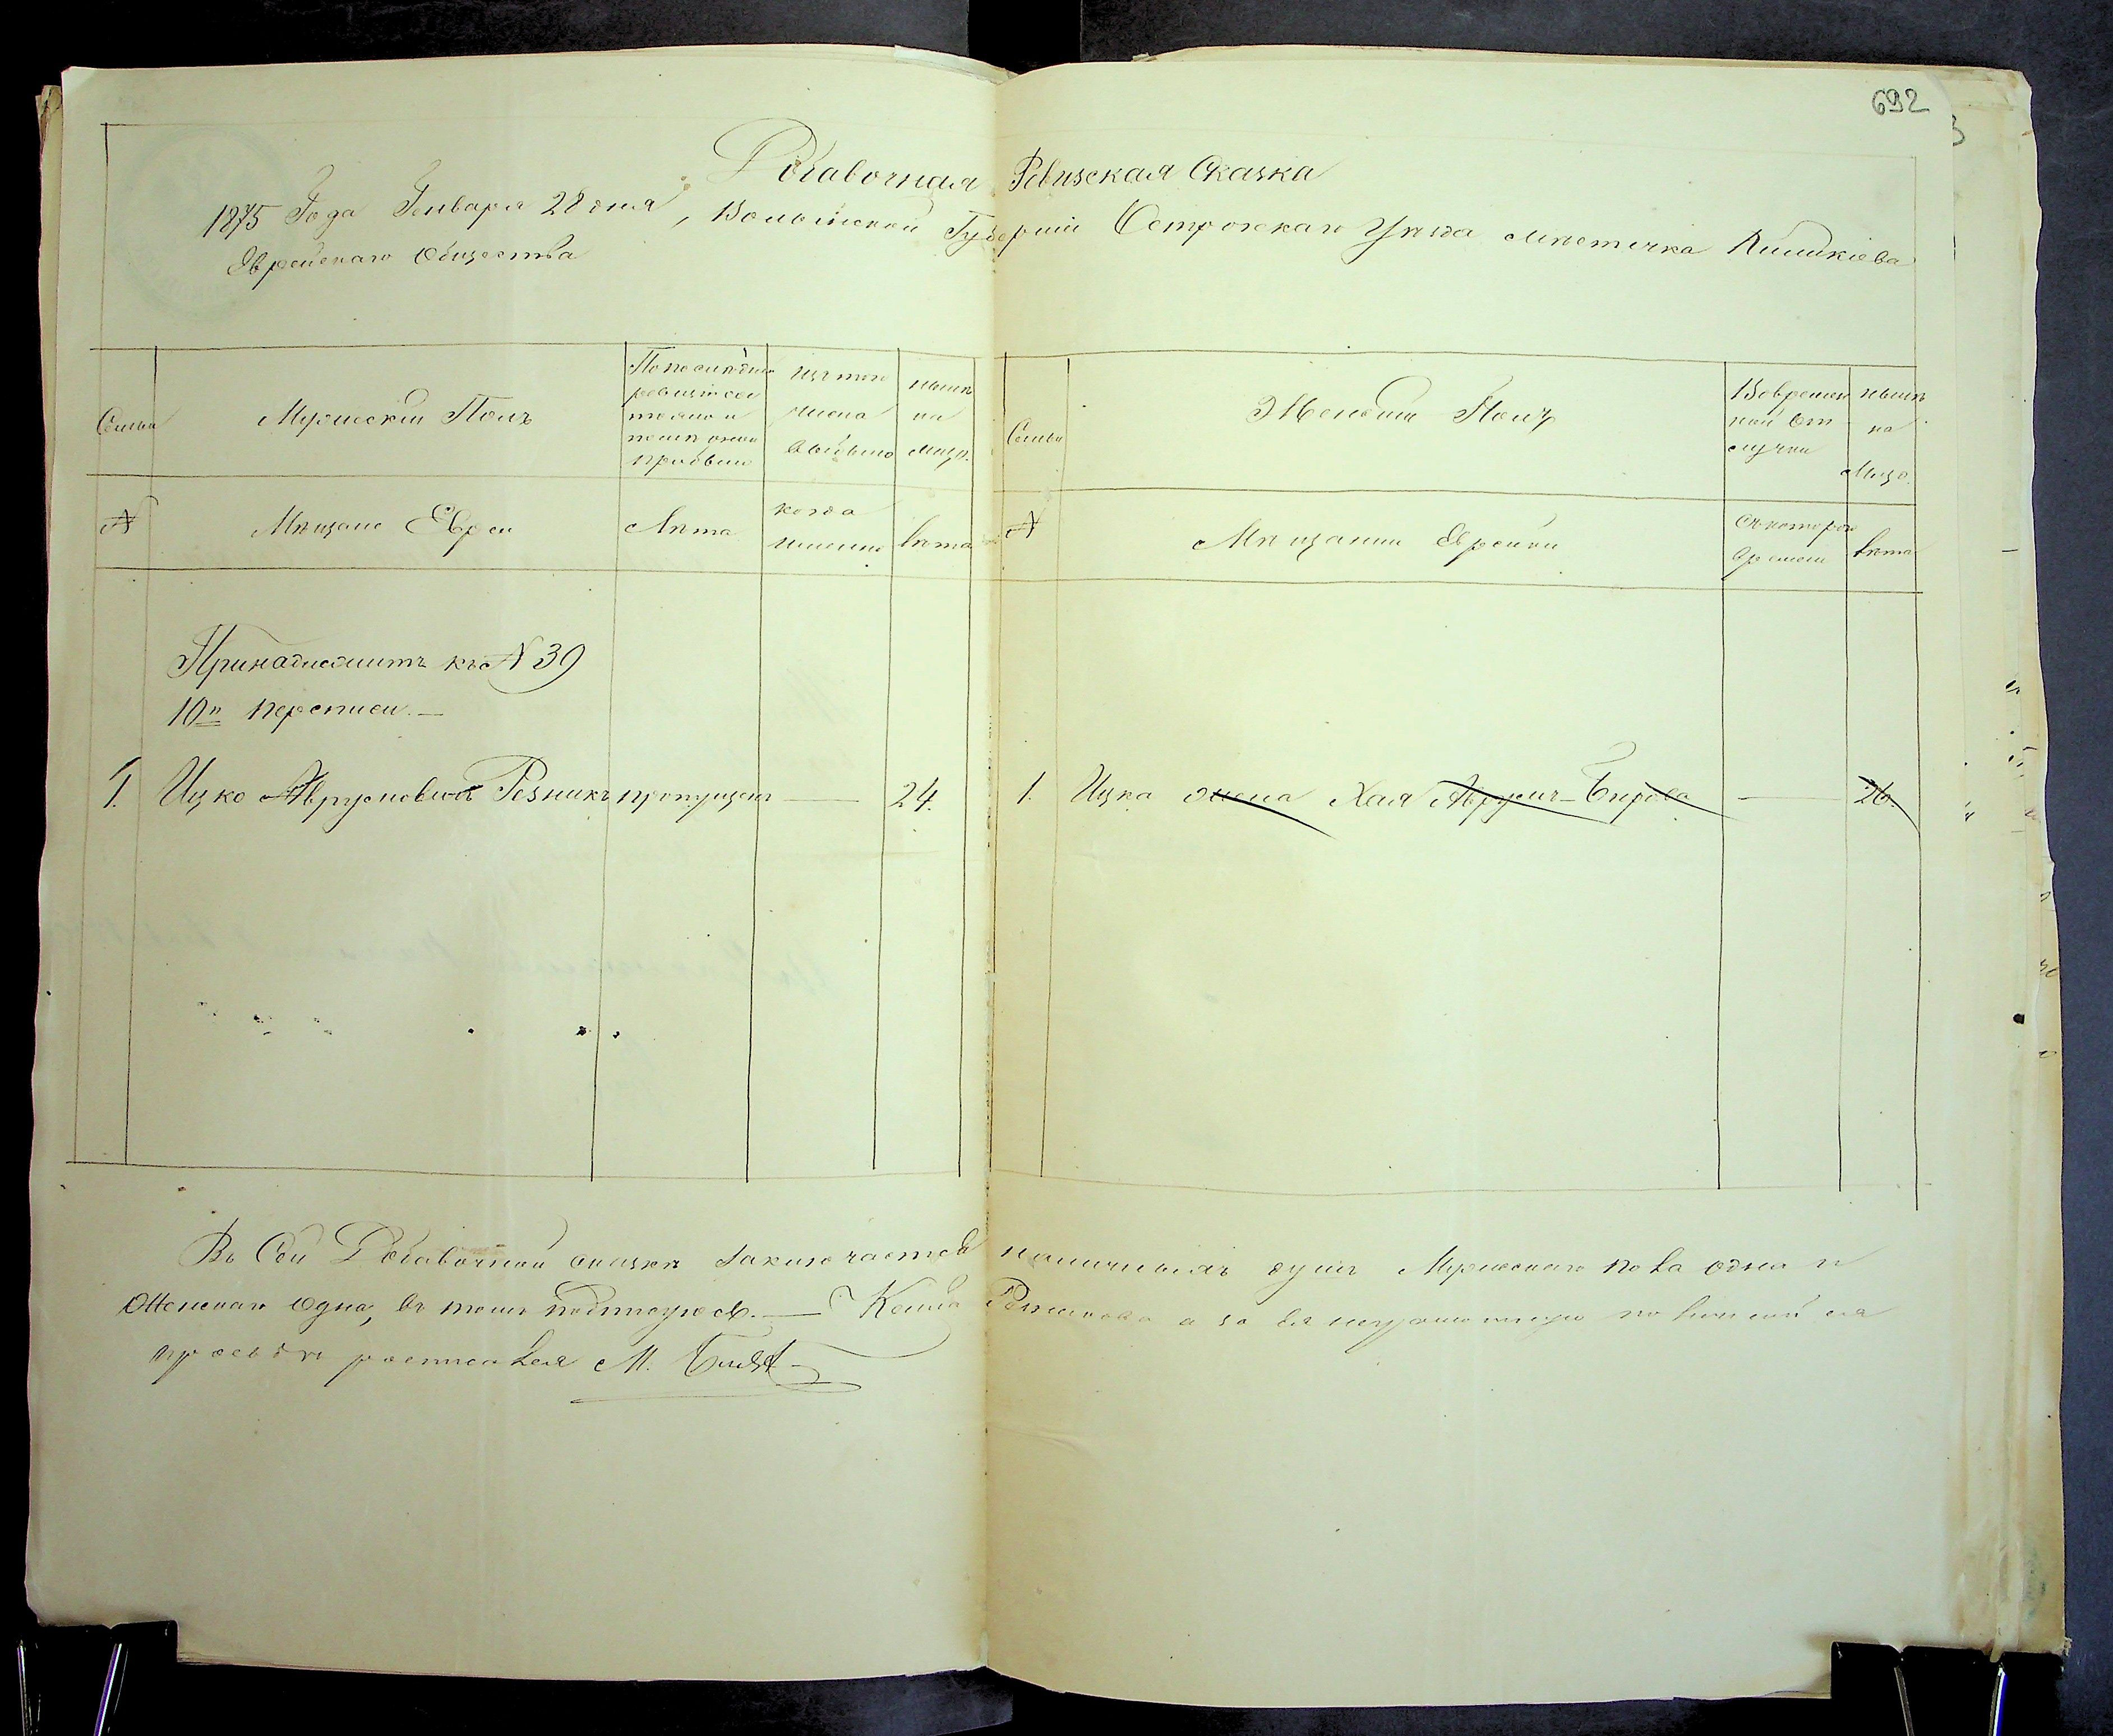 692
Добавочная Ревизская Сказка
1875 Года Генваря 28 дня, Волынской Губернии Острожскаго Уѣзда мѣстечка
Еврейскаго Общества
Семьи
Мужескій Полъ
По последней ревизіи состояло и после оной прибыло
изъ того числа выбыло
нынѣ на лицо.
Семьи
Женскій Полъ
Вовременной отлучки
нынѣ на лицо.
№
Мѣщане Евреи
Лѣта
когда именно
лѣта
№
Мѣщанки Еврейки
Съ котораго времени
лѣта
Принадлежитъ къ № 39
10й переписи.—
1. Ицко Аврумовичъ Резникъ пропущенъ — 24.
1. Ицка жена Хая Аврумъ-Берова — 26.
Въ Сей Добавочной сказкѣ заключается наличныхъ душъ Мужескаго пола одна и
Женскаго одна, въ томъ подписуюсь.— Резникова а за ея неграмотную по личной ея
просьбѣ росписался М.